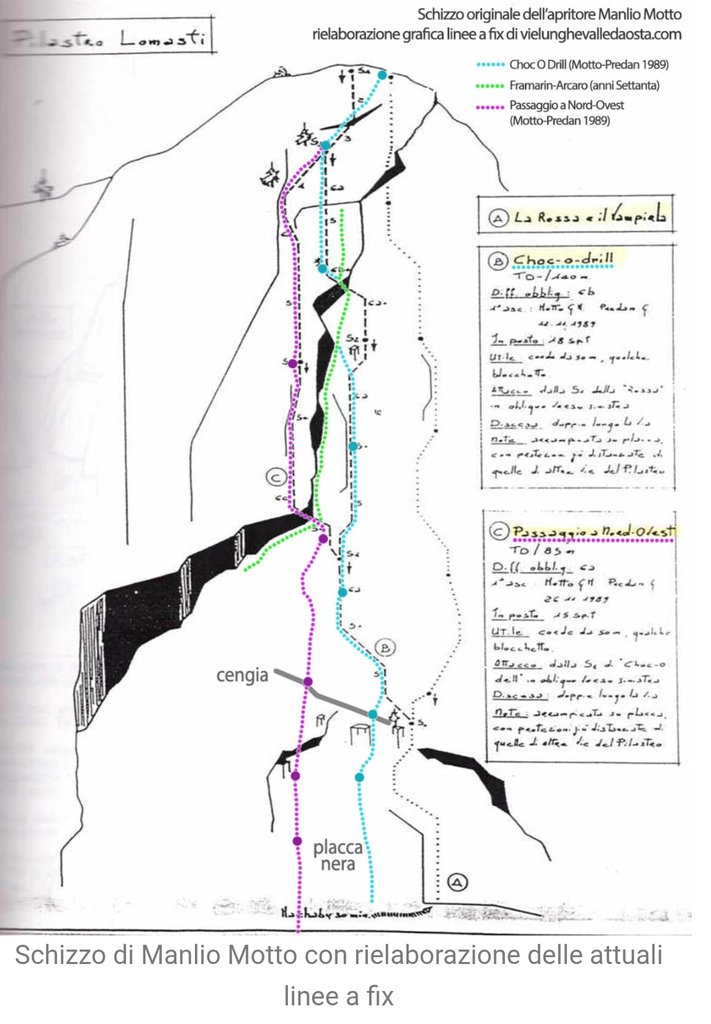 Schizzo originale dell'apritore Manlio Motto
rielaborazione grafica linee a fix di vielunghevalledaosta.com
Pilastro Lomasti
Choc O Drill (Motto-Predan 1989)
Framarin-Arcaro (anni Settanta)
Passaggio a Nord-Ovest
(Motto-Predan 1989)
A La Rossa e il Vampiro
B Choc-o-drill
TD-/120m
Diff. obblig: 6b
1ª asc: Motto G M Predan G
12.11.1989
In posto: 18 spit
Utile corde da 50m, qualche
blocchetto
Attacco dalla S2 della "Rossa"
in obliquo verso sinistra
Discesa doppie lungo la via
Note arrampicata su placca,
con protezioni più distanziate di
quelle di altre vie del Pilastro
C Passaggio a Nord-Ovest
TD/85m
Diff. obblig 6a
1ª asc: Motto G M Predan G
26 11 1989
In posto 15 spit
Utile corde da 50m, qualche
blocchetto.
Attacco dalla S2 di "Choc-o
drill" in obliquo verso sinistra
Discesa: doppie lungo la via
Note: arrampicata su placca,
con protezioni più distanziate di
quelle di altre vie del Pilastro
C
B
cengia
placca
nera
A
Machaby
Schizzo di Manlio Motto con rielaborazione delle attuali
linee a fix